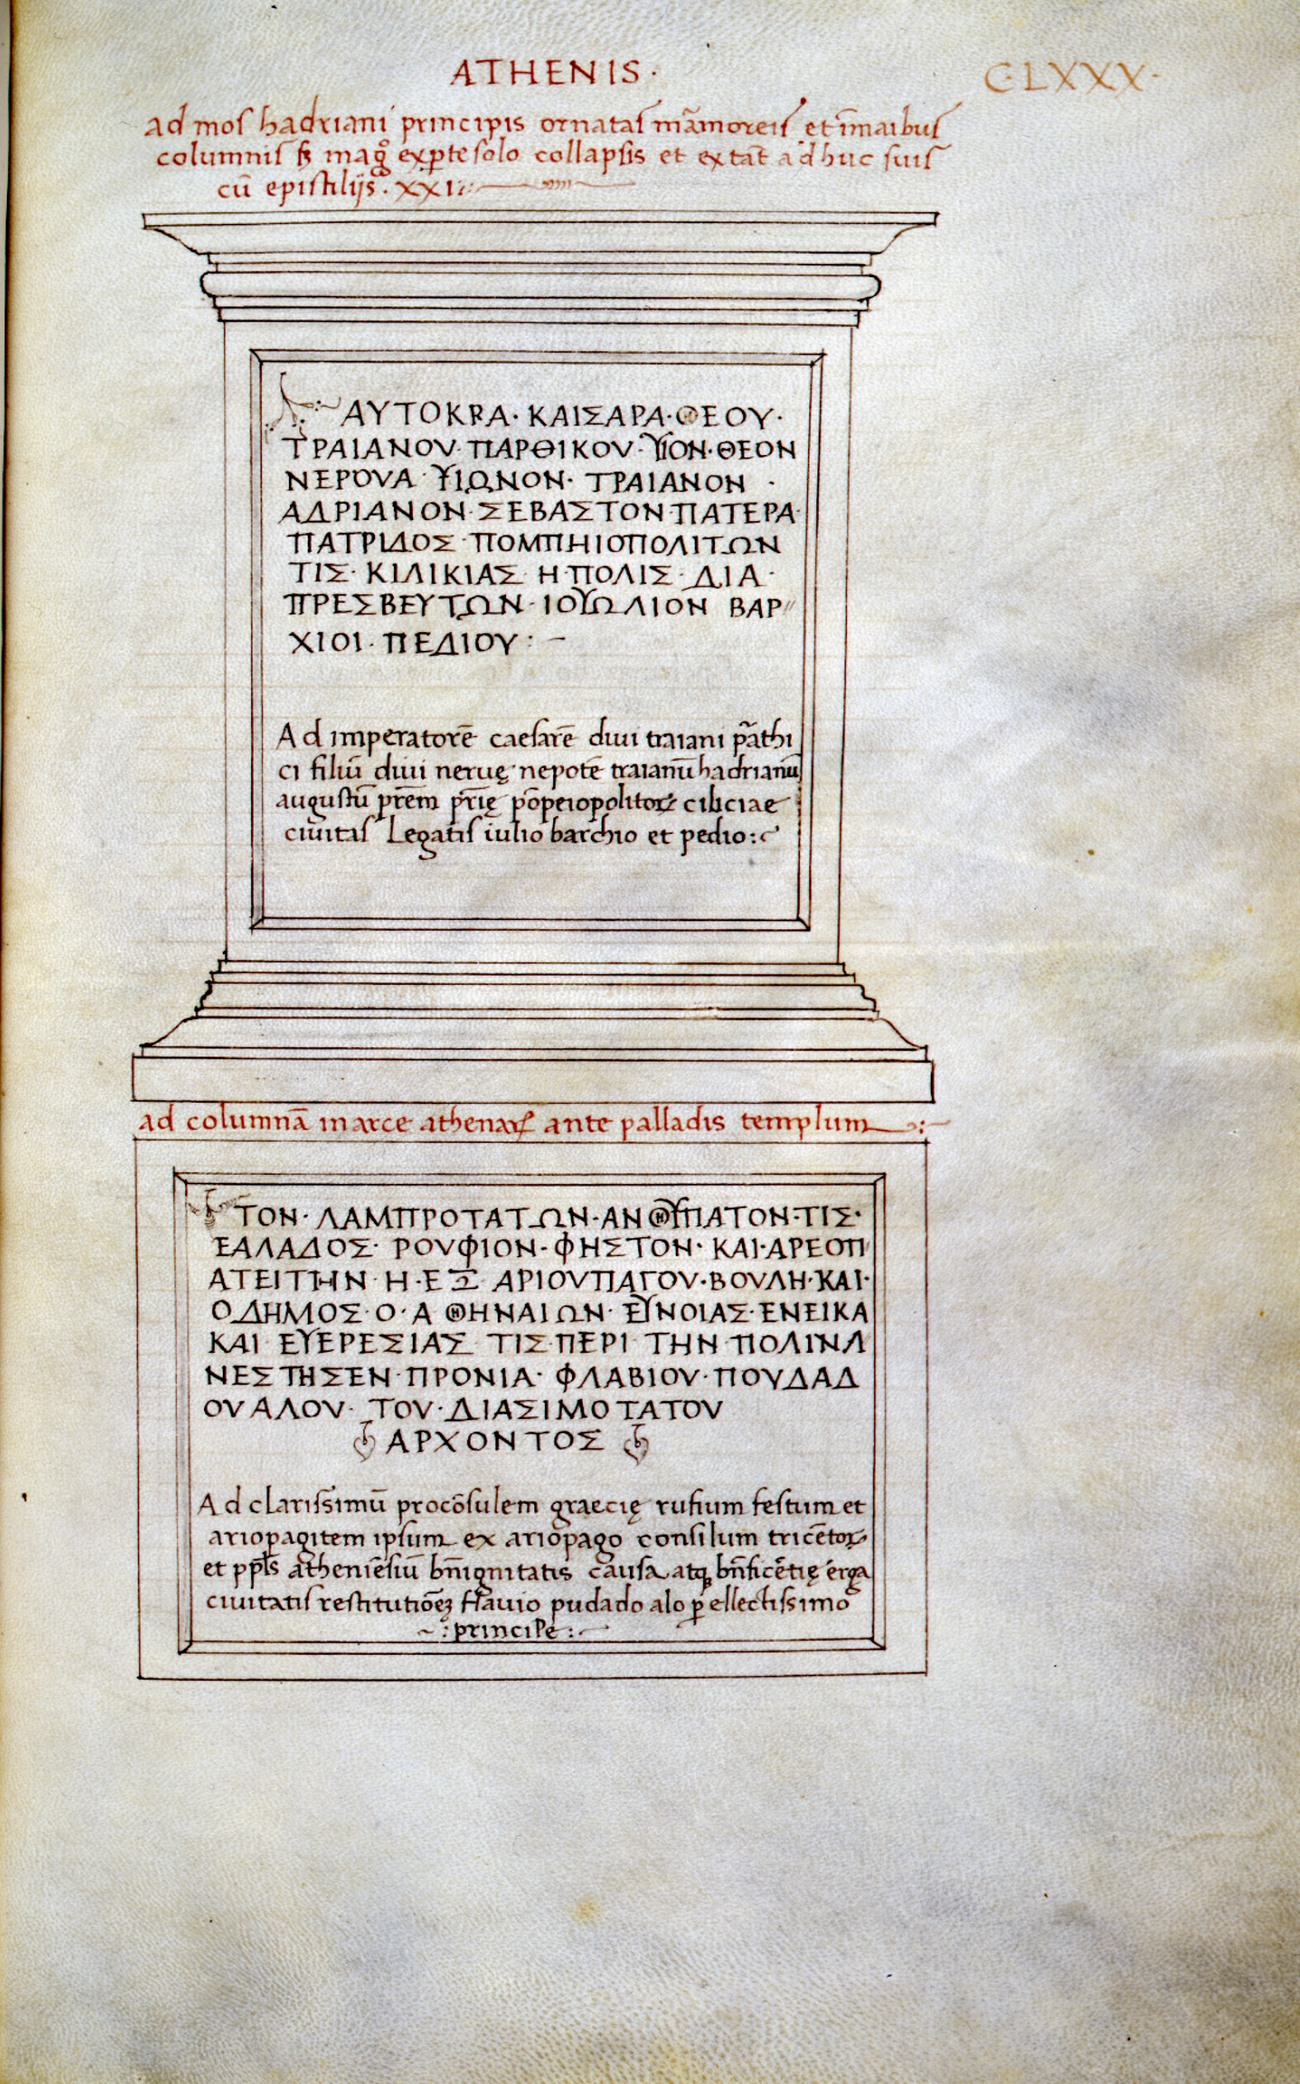 ATHENIS·
C·LXXX·
ad mos hadriani principis ornatas m̄amoreis et īmaibus
columnis ſꝫ magͣ exꝑte solo collapsis et extāt adhuc suis
cū epistilijs · XXI
ΑΥΤΟΚΡΑ· ΚΑΙΣΑΡΑ·ΘΕΟΥ·
ΤΡΑΙΑΝΟΥ·ΠΑΡΘΙΚΟΥ·ΥΙΟΝ·ΘΕΟΝ
ΝΕΡΟΥΑ ΥΙΩΝΟΝ· ΤΡΑΙΑΝΟΝ ·
ΑΔΡΙΑΝΟΝ·ΣΕΒΑΣΤΟΝ·ΠΑΤΕΡΑ·
ΠΑΤΡΙΔΟΣ·ΠΟΜΠΗΙΟΠΟΛΙΤΩΝ
ΤΙΣ· ΚΙΛΙΚΙΑΣ Η·ΠΟΛΙΣ· ΔΙΑ·
ΠΡΕΣΒΕΥΤΩΝ·ΙΟΥΩΛΙΟΝ ΒΑΡ〃
ΧΙΟΙ· ΠΕΔΙΟΥ: –
Ad imperatorē caesarē diui traiani p̄athi
ci filiū diui neruę nepotē traianū hadrianū
augustū p̄rem p̄rię pōpeiopolitoꝝ ciliciae
ciuitas Legatis iulio barchio et pedio:
ad columnā in arce athenaꝝ ante palladis templum :
ΤΟΝ· ΛΑΜΠΡΟΤΑΤΩΝ·ΑΝΘΥΠΑΤΟΝ·ΤΙΣ·
ΕΑΛΑΔΟΣ· ΡΟΥΦΙΟΝ· ΦΗΣΤΟΝ· ΚΑΙ·ΑΡΕΟΠ
ΑΤΕΙΤΗΝ·Η·ΕΞ ΑΡΙΟΥΠΑΓΟΥ·ΒΟΥΛΗ·ΚΑΙ·
Ο·ΔΗΜΟΣ·Ο·ΑΘΗΝΑΙΩΝ· ΕΥΝΟΙΑΣ·ΕΝΕΙΚΑ
ΚΑΙ ΕΥΕΡΕΣΙΑΣ ΤΙΣ·ΠΕΡΙ ΤΗΝ ΠΟΛΙΝΑ
ΝΕΣΤΗΣΕΝ·ΠΡΟΝΙΑ· ΦΛΑΒΙΟΥ·ΠΟΥΔΑΔ
ΟΥΑΛΟΥ· ΤΟΥ·ΔΙΑΣΙΜΟΤΑΤΟΥ
ΑΡΧΟΝΤΟΣ
Ad clarissimū procōsulem graecię rufium festum et
ariopagitem ipsum ex ariopago consilum tricētoꝝ
et pp̄ls atheniēsiū b̄nignitatis causa atqꝫ b̄nficētię erga
ciuitatis restitutiōeꝫ flauio pudado alo p̄ellectissimo
~:principe:~